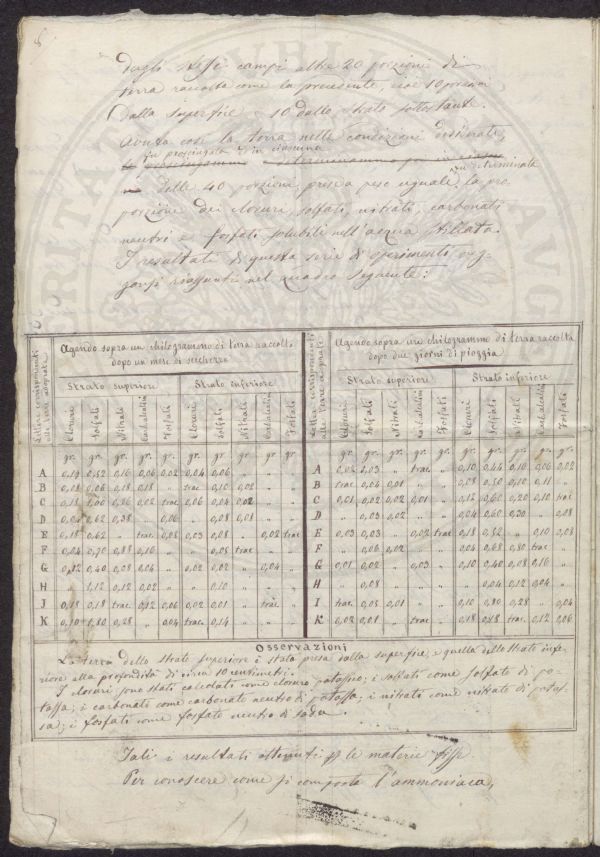 dagli stessi campi altre 20 porzioni di
terra raccolta come la precedente, cioè 10 porzioni
dalla superfice e 10 dallo strato sottostante.
Avuta così la terra nelle condizioni desiderate,
fu prosciugata e in ciascuna
delle 40 porzioni, prese a peso uguale, fu determinata la pro-
porzione dei cloruri, solfati, nitrati, carbonati
neutri e fosfati solubili nell'acqua stillata.
I resultati di questa serie di sperimenti ven-
gonsi riassunti nel quadro seguente:
Lettere corrispondenti alle terre adoprate
Agendo sopra un chilogrammo di terra raccolta
dopo un mese di seccherezza
Strato superiore Strato inferiore
Cloruri Solfati Nitrati Carbonati Fosfati Cloruri Solfati Nitrati Carbonati Fosfati
gr. gr. gr. gr. gr. gr. gr. gr. gr. gr.
A 0,19 0,52 0,16 0,06 0,02 0,04 0,06 „ „ „
B 0,18 0,06 0,18 0,18 „ trac 0,10 0,02 „ „
C 0,18 1,00 0,86 0,02 trac 0,06 0,04 0,02 „ „
D 0,62 0,38 „ 0,06 „ 0,08 0,01 „ „
E 0,18 0,62 „ trac 0,08 0,03 0,08 „ 0,02 trac
F 0,04 0,70 0,88 0,16 „ „ 0,06 trac „ „
G 0,12 0,40 0,08 0,04 „ 0,02 0,02 „ 0,04 „
H „ 1,12 0,12 0,02 „ „ 0,10 „ „ „
J 0,18 0,18 trac 0,12 0,06 0,02 0,01 „ trac „
K 0,10 0,80 0,28 „ 0,04 trac 0,14 „ „ „
Lettere corrispondenti alle terre adoprate
Agendo sopra un chilogrammo di terra raccolta
dopo due giorni di pioggia
Strato superiore Strato inferiore
Cloruri Solfati Nitrati Carbonati Fosfati Cloruri Solfati Nitrati Carbonati Fosfati
gr. gr. gr. gr. gr. gr. gr. gr. gr. gr.
A 0,02 0,03 „ trac „ 0,10 0,44 0,10 0,06 0,02
B trac 0,06 0,01 „ „ 0,08 0,50 0,10 0,11 „
C 0,01 0,02 0,02 0,01 „ 0,12 0,60 0,20 0,10 trac
D „ 0,03 0,02 „ „ 0,04 0,60 0,30 „ 0,08
E 0,03 0,03 „ 0,02 trac 0,18 0,52 „ 0,10 0,08
F „ 0,06 0,02 „ „ 0,04 0,68 0,80 trac „
G 0,01 0,02 „ 0,03 „ 0,10 0,40 0,08 0,16 „
H „ 0,08 „ „ „ „ 0,04 0,12 0,04 „
I trac 0,03 0,01 „ „ 0,10 0,80 0,28 „ 0,04
K 0,02 0,01 „ trac „ 0,18 0,18 trac 0,12 0,06
Osservazioni
La terra dello strato superiore è stata presa dalla superfice, e quella dello strato infe-
riore alla profondità di circa 10 centimetri.
I cloruri sono stati calcolati come cloruro potassico; i solfati come solfato di po-
tassa; i carbonati come carbonato neutro di potassa; i nitrati come nitrato di potas-
sa; i fosfati come fosfato neutro di soda.
Tali i resultati ottenuti per le materie fisse.
Per conoscere come si comporta l'ammoniaca,